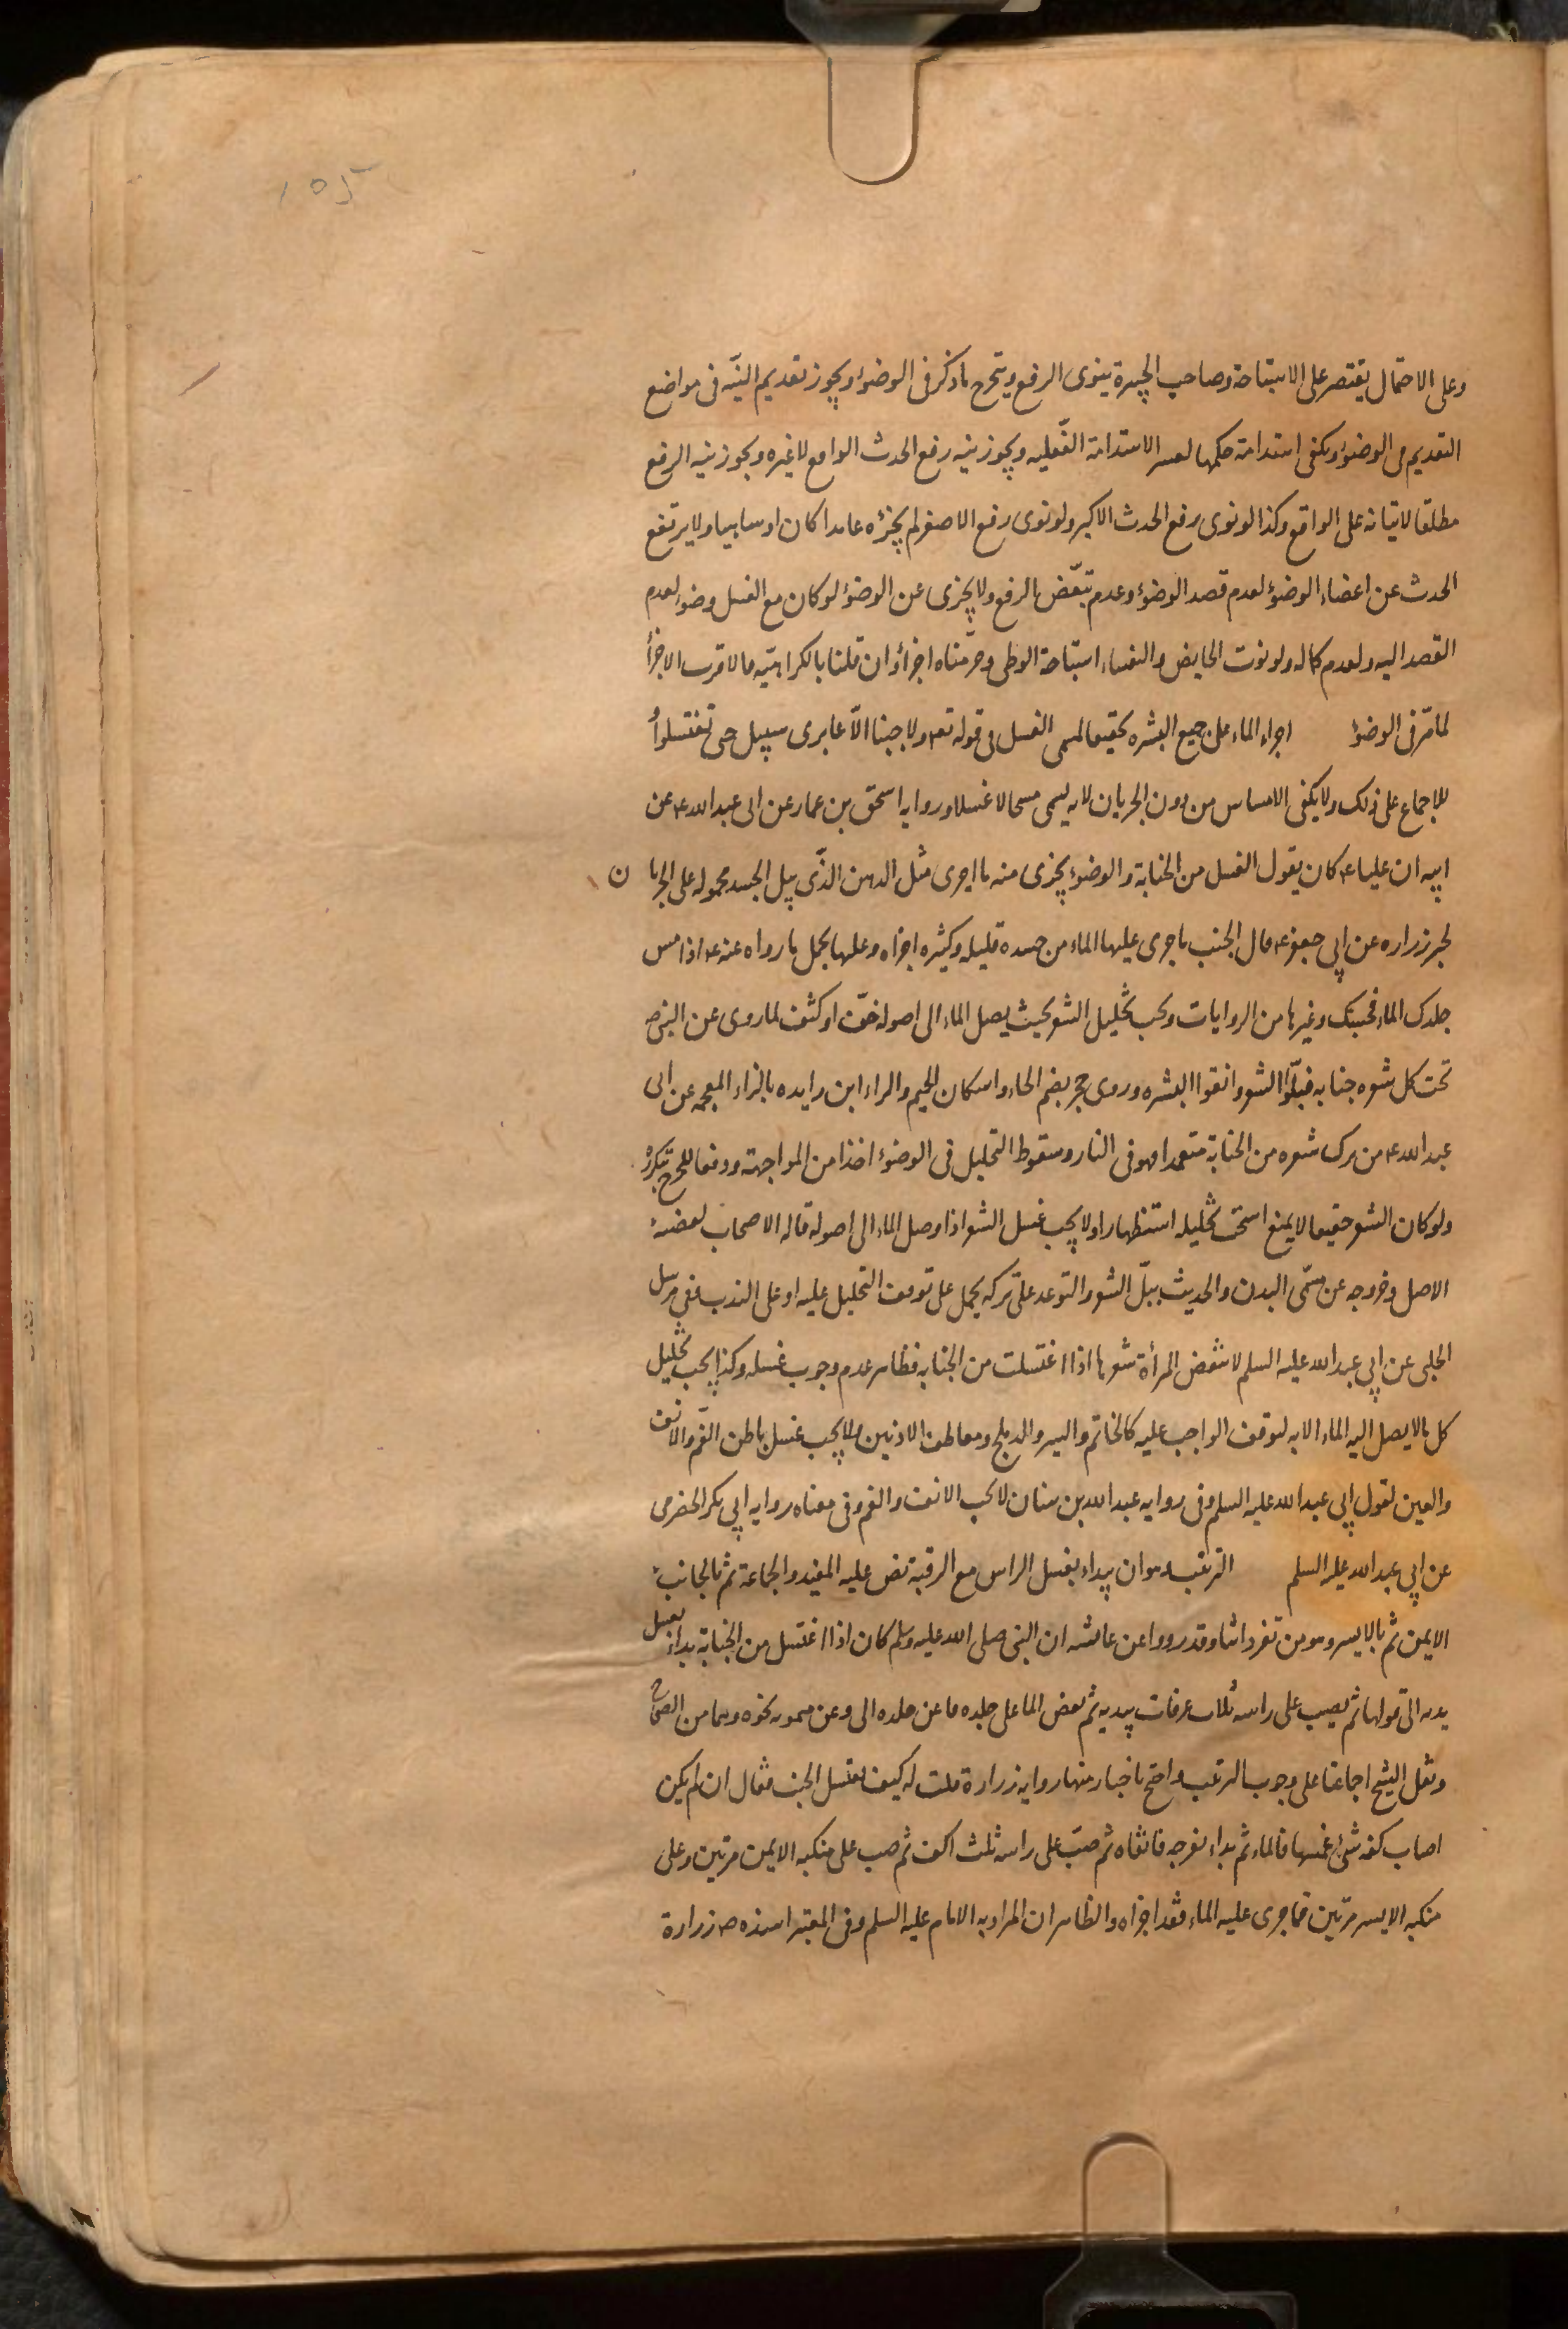 ١٥٢
وعلى الاحتمال يقتصر على الاستباحة وصاحب الجبيرة ينوى الرفع ويتخرج ما ذكر فى الوضوء ويجوز تقديم النيّه فى مواضع
التقديم فى الوضوء ويكفى استدامة حكمها لعسر الاستدامة الفعليه ويجوز نيه رفع الحدث الواقع لا غيره ويجوز نيه الرفع
مطلقا لاتيانه على الواقع وكذا لو نوى رفع الحدث الاكبر ولو نوى رفع الاصغر لم يجزه عامدا كان او ساهيا ولا يرتفع
الحدث عن اعضاء الوضوء لعدم قصد الوضوء وعدم تبعّض الرفع ولا يجزى عن الوضوء لو كان مع الغسل وضوء لعدم
القصد اليه ولعدم كماله ولو نوت الحايض والنفساء استباحة الوطى وحرّمناه اجزأ وان قلنا بالكراهيّه فالاقرب الاجزأ
لما مرّ فى الوضوء اجراء الماء على جميع البشره تحقيقا لمسمى الغسل فى قوله تعه ولا جنبا الّا عابرى سبيل حتى تغتسلوا
للاجماع على ذلك ولا يكفى الامساس من دون الجريان لانه يسمى مسحا لا غسلا وروايه اسحق بن عمار عن ابى عبد الله ع عن
ابيه ان عليا ع كان يقول الغسل من الجنابة والوضوء يجزى منه ما اجرى مثل الدهن الذّى يبل الجسد محموله على الجريان
لخبر زراره عن ابي جعفر ع قال الجنب ما جرى عليها الماء من جسده قليله وكثيره اجزاه وعليها يحمل ما رواه عنه ع اذا مس
جلدك الماء فحسبك وغيرها من الروايات ويجب تخليل الشعر بحيث يصل الماء الى اصوله خفّ او كثف لما روى عن النبى ص
تحت كل شعره جنابه فبلّوا الشعر وانقوا البشره وروى حجر بضم الحاء واسكان الجيم والراء ابن زايده بالزاء المعجمه عن ابى
عبد الله ع من ترك شعره من الجنابة متعمدا فهو فى النار وسقوط التخليل فى الوضوء اخذا من المواجهة ودفعا للحرج بتكرره
ولو كان الشعر خفيفا لا يمنع استحب تخليله استظهارا ولا يجب غسل الشعر اذا وصل الماء الى اصوله قاله الاصحاب لقضيه
الاصل وخروجه عن مسمّى البدن والحديث ببلّ الشعر والتوعد على تركه يحمل على توقف التخليل عليه او على الندب ففى مرسل
الحلبى عن ابي عبد الله عليه السلم لا تنقض المرأة شعرها اذا اغتسلت من الجنابه فظاهر عدم وجوب غسله وكذا يجب تخليل
كل ما لا يصل اليه الماء الا به لتوقف الواجب عليه كالخاتم والسير والدملج ومعاطف الاذنين ولا يجب غسل باطن الفم والانف
والعين لقول ابي عبد الله عليه السلم وفى روايه عبد الله بن سنان لا يجب الانف والفم وفى معناه روايه ابي بكر الحضرمى
عن ابي عبد الله عليه السلم الترتيب وهو ان يبداء بغسل الراس مع الرقبة نص عليه المفيد والجماعة ثم بالجانب
الايمن ثم بالايسر وهو من تفرداتنا وقد رووا عن عائشه ان النبى صلى الله عليه وسلم كان اذا اغتسل من الجنابة بداء يغسل
يديه الى قولها ثم يصب على راسه ثلاث غرفات بيديه ثم يفض الماء على جلده وعن ميمونه نحوه وهما من الصحاح
ونقل الشيخ اجماعنا على وجوب الترتيب واحتج باخبار منها روايه زرارة قلت له كيف يغتسل الجنب فقال ان لم يكن
اصاب كفه شئ غمسها فالماء ثم بداء بفرجه فانقاه ثم صبّ على راسه ثلث اكف ثم صب على منكبه الايمن مرتين وعلى
منكبه الايسر مرّتين فما جرى عليه الماء فقد اجزاه والظاهر ان المراد به الامام عليه السلم وفى المعتبر اسنده ص زرارة